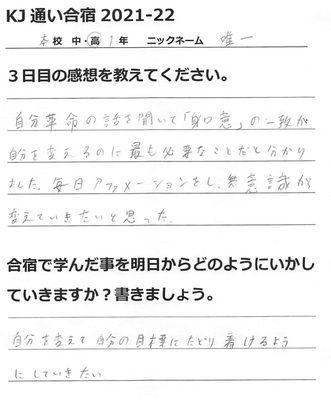 KJ 通い合宿 2021-22
本校 中・高 1年 ニックネーム 唯一
３日目の感想を教えてください。
自分革命の話を聞いて「知意」の一致が
自分を変えるのに最も必要なことだと分かり
ました。毎日アファメーションをし、無意識から
変えていきたいと思った。
合宿で学んだ事を明日からどのようにいかし
ていきますか？書きましょう。
自分を変えて自分の目標にたどり着けるよう
にしていきたい